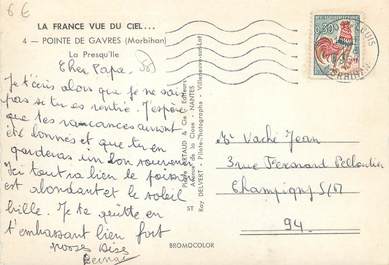 6€
LA FRANCE VUE DU CIEL...
4 — POINTE DE GAVRES (Morbihan)
La Presqu'île
Cher Papa
Je t'écris alors que je ne sais
pas si tu es rentré. J'espère
que tes vacances auront
été bonnes et que tu en
garderas un bon souvenir
Ici tout va bien le poisson
est abondant et le soleil
brille. Je te quitte en
t'embrassant bien fort
Grosses Bises
ARTAUD & Cie - Editeurs
Avenue de la Close - NANTES
Ray DELVERT - Pilote-Photographe - Villeneuve-sur-Lot
ST
BROMOCOLOR
LOUIS
MORBIHAN
0,30
Mr Vaché Jean
3 rue Fernand Pelloutier
Champigny S/M
94.